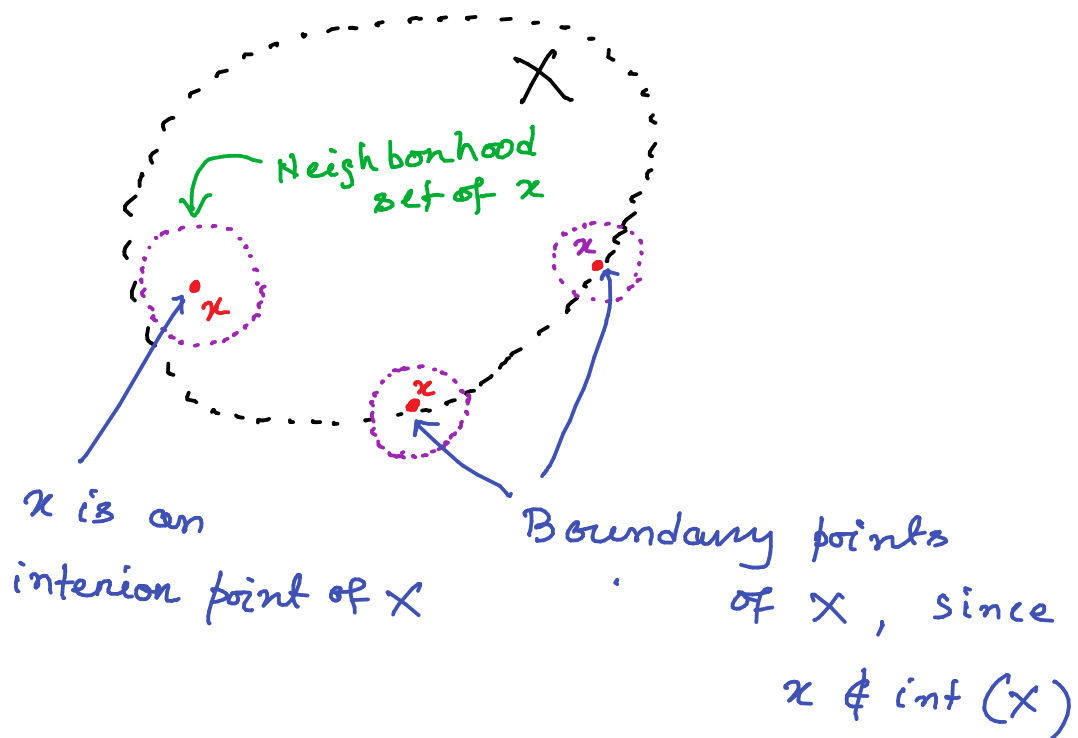 X
Neighbonhood
set of x
x
x
x
x is an
interion point of X
Boundany points
of X, since
x ∉ int (X)